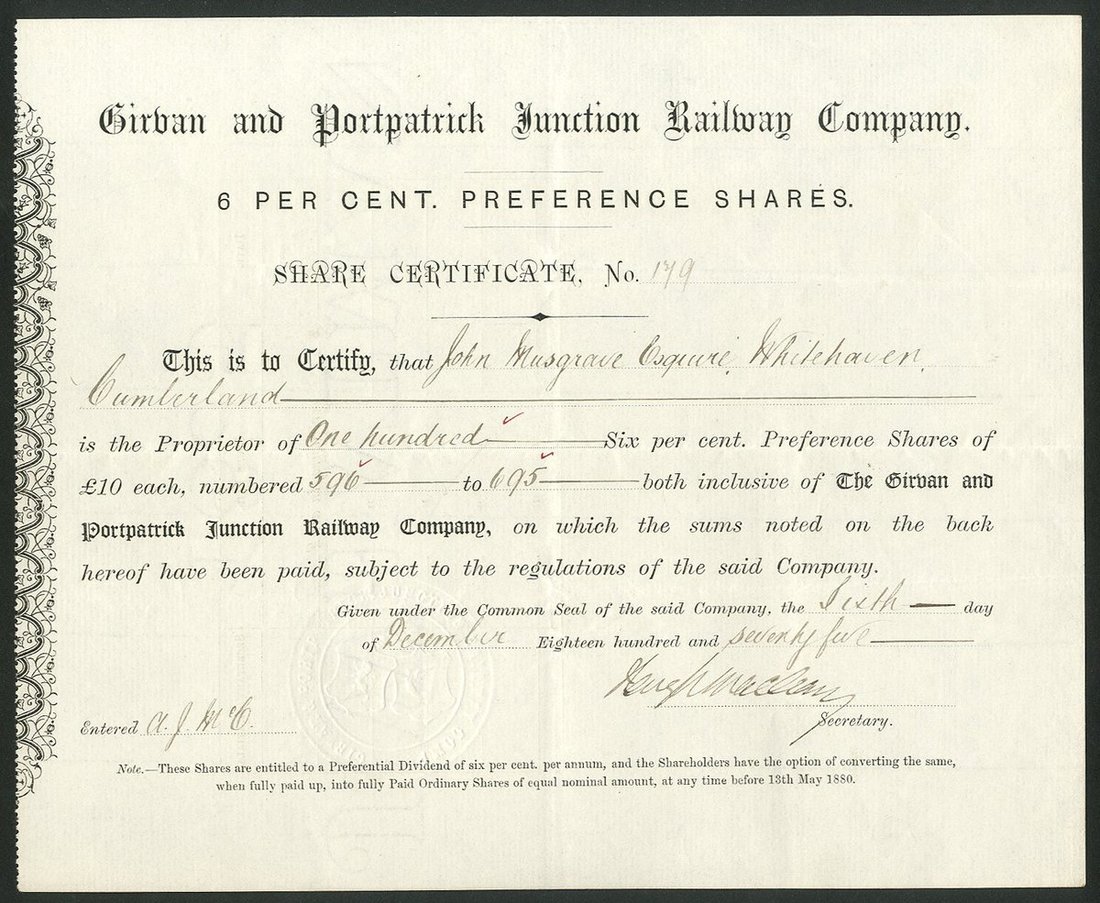 Girvan and Portpatrick Junction Railway Company.
6 PER CENT. PREFERENCE SHARES.
SHARE CERTIFICATE, No. 179
This is to Certify, that John Musgrave Esquire, Whitehaven,
Cumberland
is the Proprietor of One hundred Six per cent. Preference Shares of
£10 each, numbered 596 to 695 both inclusive of The Girvan and
Portpatrick Junction Railway Company, on which the sums noted on the back
hereof have been paid, subject to the regulations of the said Company.
Given under the Common Seal of the said Company, the Sixth day
of December Eighteen hundred and seventy five
Hugh Maclean
Secretary.
Entered A. J. McC.
Note.—These Shares are entitled to a Preferential Dividend of six per cent. per annum, and the Shareholders have the option of converting the same,
when fully paid up, into fully Paid Ordinary Shares of equal nominal amount, at any time before 13th May 1880.